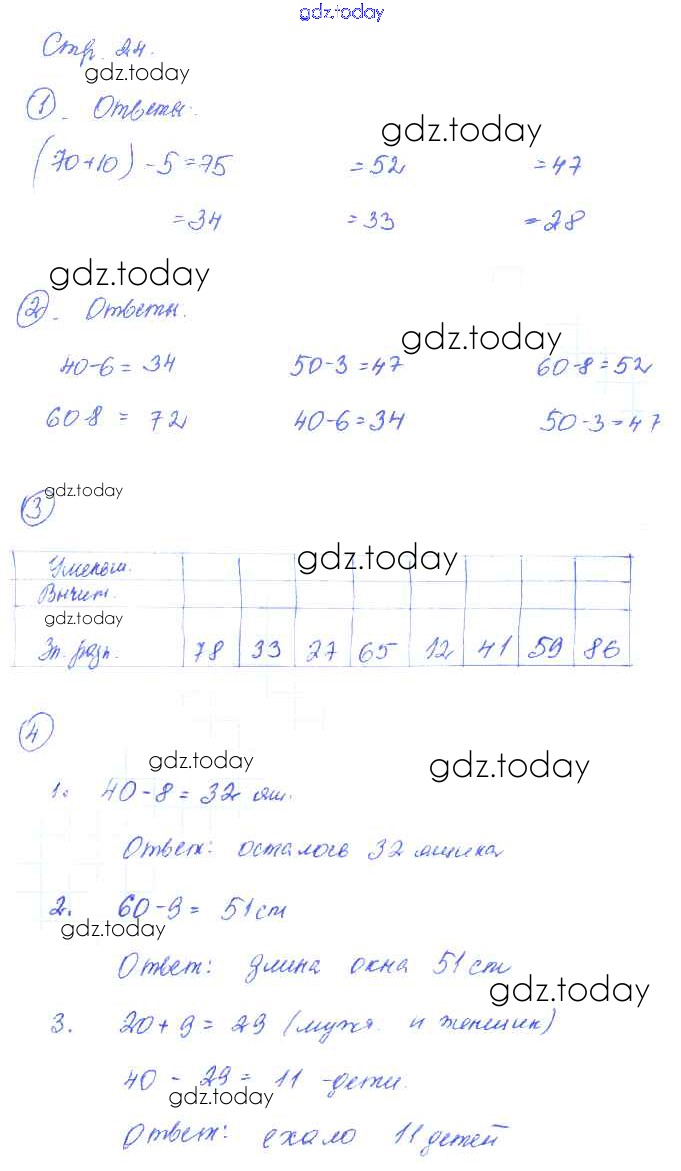 gdz.today
Стр. 24.
gdz.today
1. Ответы.
gdz.today
(70+10) - 5 = 75 = 52 = 47
= 34 = 33 = 28
gdz.today
2. Ответы.
gdz.today
40-6 = 34 50-3 = 47 60-8 = 52
60 8 = 72 40-6 = 34 50-3 = 47
gdz.today
3
gdz.today
Уменьш.
Вычит.
gdz.today
Зн. разн. 78 33 27 65 12 41 59 86
4
gdz.today
gdz.today
1. 40-8 = 32 ящ.
Ответ: осталось 32 ящика
2. 60-9 = 51 см
gdz.today
Ответ: длина окна 51 см
gdz.today
3. 20+9 = 29 (мужч. и женщин)
40 - 29 = 11 -дети.
gdz.today
Ответ: ехало 11 детей